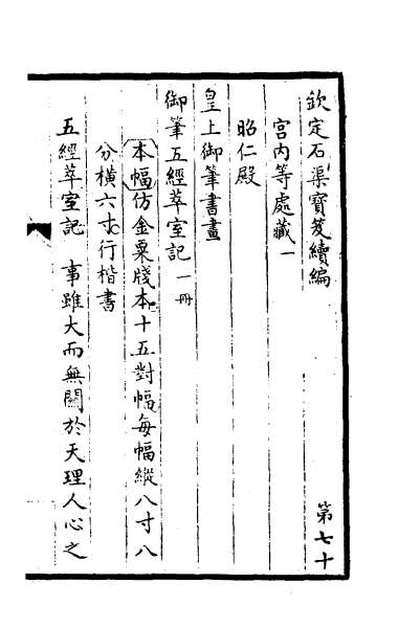 欽定石渠寶笈續編 第七十
宮內等處藏一
昭仁殿
皇上御筆書畫
御筆五經萃室記一冊
本幅仿金粟牋本十五對幅每幅縱八寸八
分橫六寸行楷書
五經萃室記 事雖大而無關於天理人心之